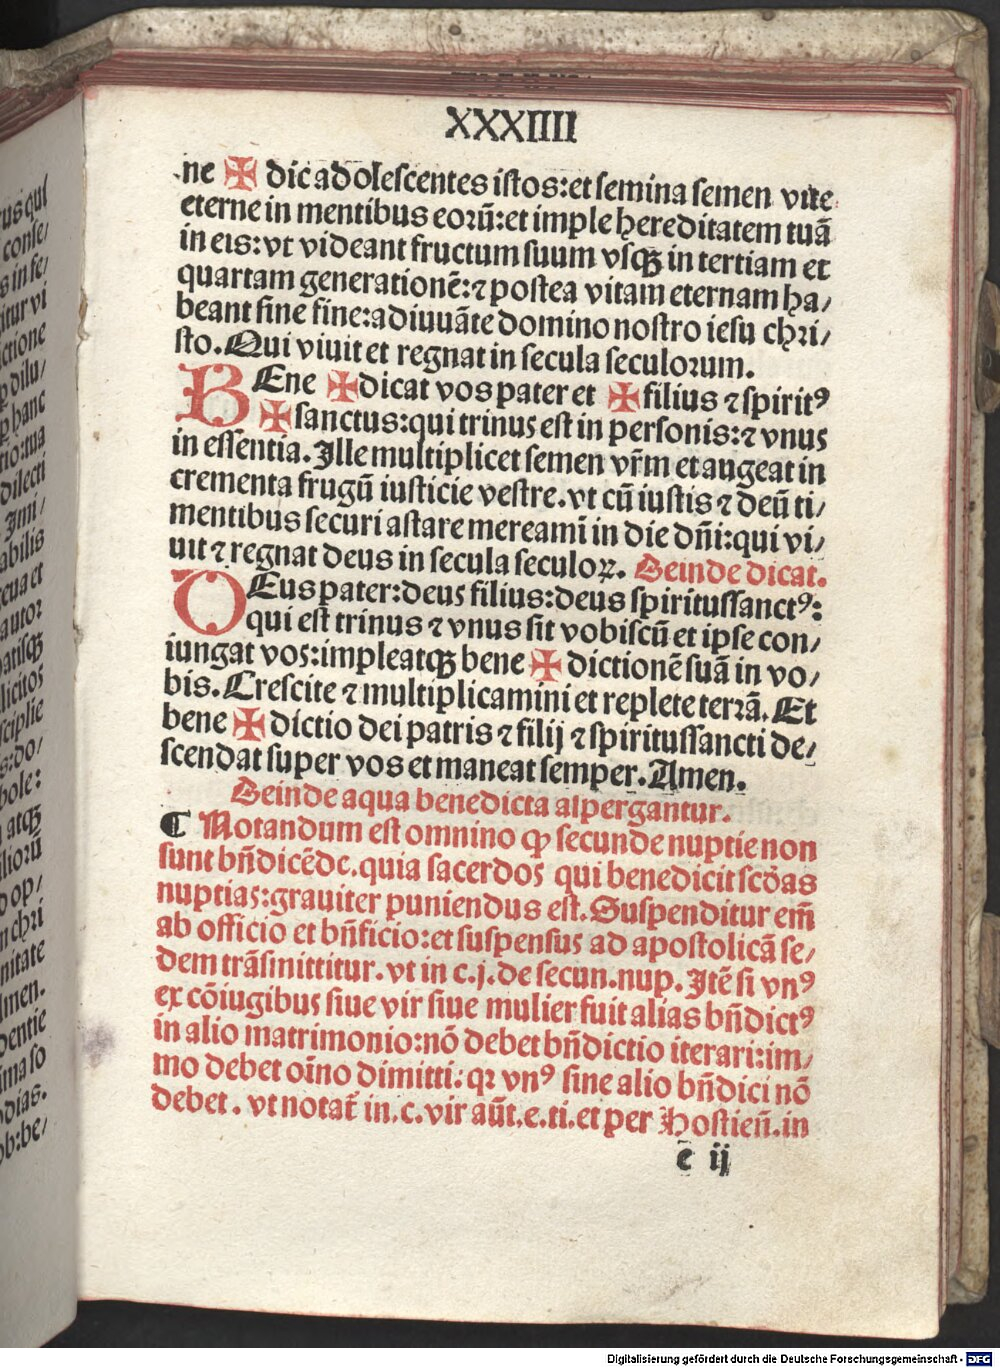 XXXIIII
ne ✠ dic adolescentes istos: et semina semen vite
eterne in mentibus eorū: et imple hereditatem tuā
in eis: vt videant fructum suum vsqꝫ in tertiam et
quartam generationē: ⁊ postea vitam eternam ha/
beant fine fine: adiuuāte domino nostro iesu chri/
sto. Qui viuit et regnat in secula seculorum.
BEne ✠ dicat vos pater et ✠ filius ⁊ spiritꝰ
✠ sanctus: qui trinus est in personis: ⁊ vnus
in essentia. Ille multiplicet semen vr̄m et augeat in
crementa frugū iusticie vestre. vt cū iustis ⁊ deū ti/
mentibus securi astare mereami̅ in die dn̄i: qui vi/
uit ⁊ regnat deus in secula seculoꝝ. Deinde dicat.
DEus pater: deus filius: deus spiritussanctꝰ:
qui est trinus ⁊ vnus sit vobiscū et ipse con/
iungat vos: impleatqꝫ bene ✠ dictionē suā in vo/
bis. Crescite ⁊ multiplicamini et replete terrā. Et
bene ✠ dictio dei patris ⁊ filij ⁊ spiritussancti de/
scendat super vos et maneat semper. Amen.
Deinde aqua benedicta aspergantur.
¶ Notandum est omnino ꝙ secunde nuptie non
sunt bn̄dicēde. quia sacerdos qui benedicit scōas
nuptias: grauiter puniendus est. Suspenditur em̄
ab officio et bn̄ficio: et suspensus ad apostolicā se/
dem trāsmittitur. vt in c. j. de secun. nup. Itē si vnꝰ
ex cōiugibus siue vir siue mulier fuit alias bn̄dictꝰ
in alio matrimonio: nō debet bn̄dictio iterari: im/
mo debet oīno dimitti: qꝛ vnꝰ sine alio bn̄dici nō
debet. vt notat̄ in. c. vir aūt. e. ti. et per Hostien̄. in
e ij
Digitalisierung gefördert durch die Deutsche Forschungsgemeinschaft - DFG